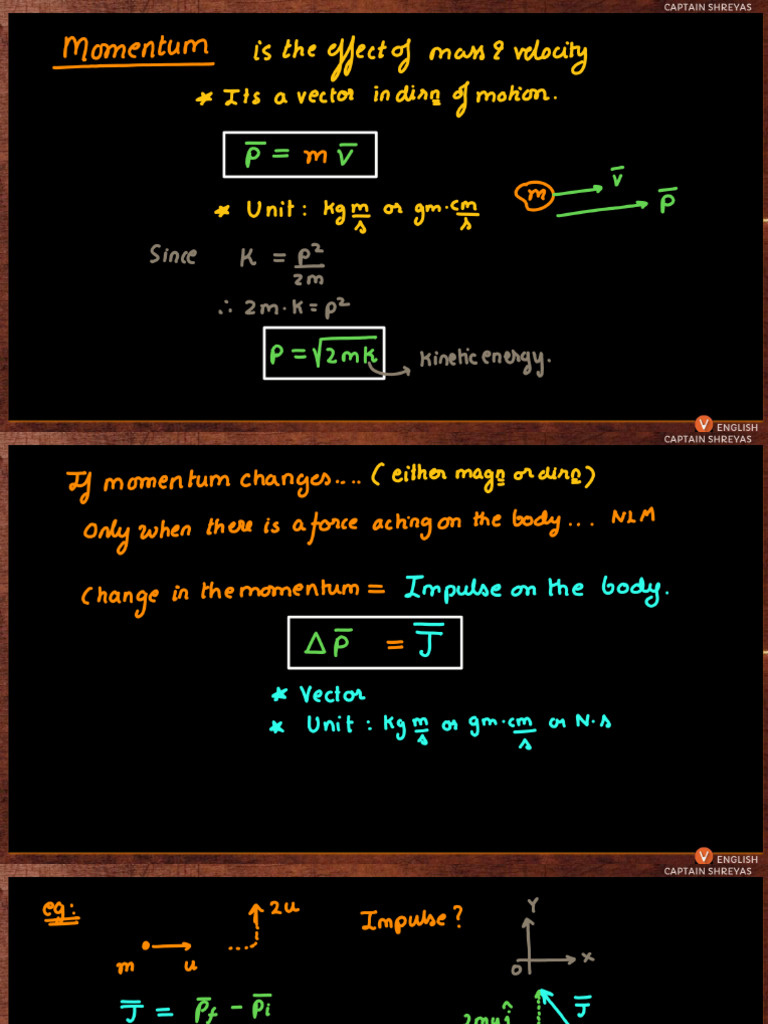 CAPTAIN SHREYAS
Momentum is the effect of mass & velocity
* Its a vector in dirn of motion.
P̅ = m v̅
m v̅ P̅
* Unit : kg m/s or gm.cm/s
Since K = p²/2m
∴ 2m.K = p²
P = √2mk → kinetic energy.
V ENGLISH
CAPTAIN SHREYAS
If momentum changes.... (either magn or dirn)
Only when there is a force acting on the body... NLM
Change in the momentum = Impulse on the body.
Δ P̅ = J̅
* Vector
* Unit : kg m/s or gm.cm/s or N.s
V ENGLISH
CAPTAIN SHREYAS
eg: 2u Impulse? Y
m u O X
J̅ = P̅f - P̅i J̅
2muĵ